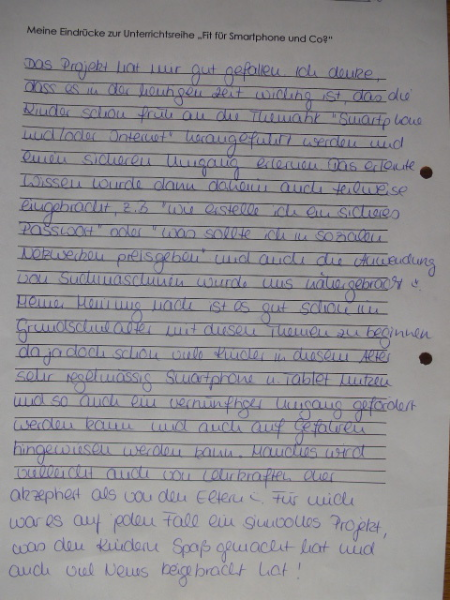 Meine Eindrücke zur Unterrichtsreihe „Fit für Smartphone und Co?"
Das Projekt hat mir gut gefallen. Ich denke,
dass es in der heutigen Zeit wichtig ist, das die
Kinder schon früh an die Thematik "Smartphone
und/oder Internet" herangeführt werden und
einen sicheren Umgang erlernen. Das erlernte
Wissen wurde dann daheim auch teilweise
eingebracht, z.B "wie erstelle ich ein sicheres
Passwort" oder "was sollte ich in sozialen
Netzwerken preisgeben" und auch die Anwendung
von Suchmaschinen wurde uns nähergebracht :
Meiner Meinung nach ist es gut schon im
Grundschulalter mit diesen Themen zu beginnen
da ja doch schon viele Kinder in diesem Alter
sehr regelmässig Smartphone u. Tablet nutzen
und so auch ein vernünftiger Umgang gefördert
werden kann und auch auf Gefahren
hingewiesen werden kann. Manches wird
vielleicht auch von Lehrkräften eher
akzeptiert als von den Eltern :. Für mich
war es auf jeden Fall ein sinnvolles Projekt,
was den Kindern Spaß gemacht hat und
auch viel Neues beigebracht hat !